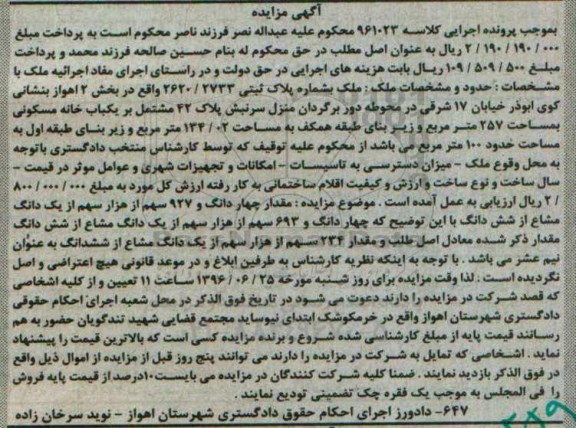 آگهی مزایده
بموجب پرونده اجرایی کلاسه ۹۶۱۰۲۳ محکوم علیه عبداله نصر فرزند ناصر محکوم است به پرداخت مبلغ
۲/۱۹۰/۱۹۰/۰۰۰ ریال به عنوان اصل مطلب در حق محکوم له بنام حسین صالحه فرزند محمد و پرداخت
مبلغ ۱۰۹/۵۰۹/۵۰۰ ریال بابت هزینه های اجرایی در حق دولت و در راستای اجرای مفاد اجرائیه ملک با
مشخصات : حدود و مشخصات ملک : ملک بشماره پلاک ثبتی ۲۶۲۰/۲۷۳۳ واقع در بخش ۲ اهواز بنشانی
کوی ابوذر خیابان ۱۷ شرقی در محوطه دور برگردان منزل سرنبش پلاک ۴۲ مشتمل بر یکباب خانه مسکونی
بمساحت ۲۵۷ متر مربع و زیر بنای طبقه همکف به مساحت ۱۳۴/۰۲ متر مربع و زیر بنای طبقه اول به
مساحت حدود ۱۰۰ متر مربع می باشد از محکوم علیه توقیف که توسط کارشناس منتخب دادگستری باتوجه
به محل وقوع ملک - میزان دسترسی به تاسیسات - امکانات و تجهیزات شهری و عوامل موثر در قیمت -
سال ساخت و نوع ساخت و ارزش و کیفیت اقلام ساختمانی به کار رفته ارزش کل مورد به مبلغ ۸۰۰/۰۰۰/۰۰۰
/۲ ریال ارزیابی به عمل آمده است . موضوع مزایده : مقدار چهار دانگ و ۹۲۷ سهم از هزار سهم از یک دانگ
مشاع از شش دانگ با این توضیح که چهار دانگ و ۶۹۳ سهم از هزار سهم از یک دانگ مشاع از شش دانگ
مقدار ذکر شده معادل اصل طلب و مقدار ۲۳۴ سهم از هزار سهم از یک دانگ مشاع از ششدانگ به عنوان
نیم عشر می باشد . با توجه به اینکه نظریه کارشناس به طرفین ابلاغ و در موعد قانونی هیچ اعتراضی و اصل
نگردیده است : لذا وقت مزایده برای روز شنبه مورخه ۱۳۹۶/۰۶/۲۵ ساعت ۱۱ تعیین و از کلیه اشخاصی
که قصد شرکت در مزایده را دارند دعوت می شود در تاریخ فوق الذکر در محل شعبه اجرای احکام حقوقی
دادگستری شهرستان اهواز واقع در خرمکوشک ابتدای نیوساید مجتمع قضایی شهید تندگویان حضور به هم
رسانند قیمت پایه از مبلغ کارشناسی شده شروع و برنده مزایده کسی است که بالاترین قیمت را پیشنهاد
نماید . اشخاصی که تمایل به شرکت در مزایده را دارند می توانند پنج روز قبل از مزایده از اموال ذیل واقع
در فوق الذکر بازدید نمایند . ضمنا کلیه شرکت کنندگان در مزایده می بایست ۱۰درصد از قیمت پایه فروش
را فی المجلس به موجب یک فقره چک تضمینی تودیع نمایند .
۶۴۷- دادورز اجرای احکام حقوق دادگستری شهرستان اهواز - نوید سرخان زاده